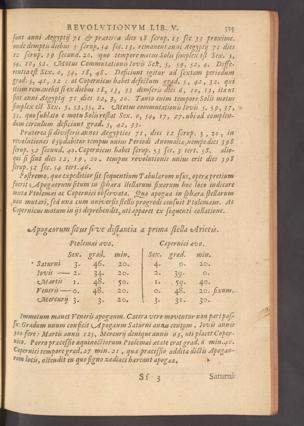 REVOLVTIONVM LIB. V. 
sunt anni Aegyptij 71 & præterea dies 18 scrup. 13 sec. 33 proxime.
unde demptis diebus 5 scrup. 14 sec. 13, remanent anni Aegyptij 71 dies
12 scrup. 19 secund. 20. quo tempore motus Solis simplex est Sex. 5,
54, 10, 52. Motus Commutationis Iovis Sex. 5, 59, 52, 4. Diffe-
rentia est Sex. 0, 54, 18, 48. Deficiunt igitur ad sextam periodum
grad. 5, 41, 12: at Copernicus habet defectum grad. 5, 42, 32. qui
etiam
sint anni Aegyptij 71 dies 12, 3, 20. Tanto enim tempore Solis motus
simplex est Sex. 5, 53, 55, 2. Motus commutationis Iovis 5, 59, 37,
31. quo sublato è motu Solis restat Sex. 0, 54, 17, 27. ubi ad complen-
dum circulum deficiunt grad. 5, 42, 33.
Præterea si diviseris annos Aegyptios 71, dies 12 scrup. 3, 20, in
revolutiones 65, habebitur tempus unius Periodi Anomaliæ, nempe dies 398
scrup. 52 secund. 40. Copernicus habet scrup. 53 sec. 3 tert. 58.
qui si sint dies 12, 19, 20. tempus revolutionis unius erit dies 398
scrup. 52 sec. 54 tert. 46.
Postremo, quo expeditior sit sequentium Tabularum usus, operæ pretium
fuerit Apogæorum situm in sphæra stellarum fixarum hoc loco indicare
juxta Ptolemæi et Copernici observata. Quæ apogæa in sphæra stellarum
non mutari, sed una cum universo stellis progredi censuit Ptolemæus. At
Copernicus motum in ijs deprehendit, uti apparet ex sequenti collatione.
Apogæorum situs sive distantia à prima stella Arietis.
Ptolemæi ævo. Copernici ævo.
Sex. grad. min. Sex. grad. min.
Saturni 3. 46. 20. 4. 0. 20.
Iovis — 2. 34. 20. 2. 39. 0.
Martis 1. 48. 50. 1. 59. 40.
Veneris — 0. 48. 20. 0. 48. 20. fixum.
Mercurij 3. 3. 20. 3. 31. 30.
Immotum manet Veneris apogæum. Cætera vero moventur non pari pas-
su: Gradum unum conficit Apogæum Saturni annis centum. Iovis annis
300 fere: Martis annis 125, Mercurij denique annis 63, uti placet Coper-
nico. Porro præcessio æquinoctiorum Ptolemæi ætate erat grad. 6 min. 40.
Copernici tempore grad. 27 min. 21, quæ præcessio addita dictis Apogæo-
rum locis, ostendit in quo signo zodiaci hæreant apogæa.
Sf 3 Saturnis